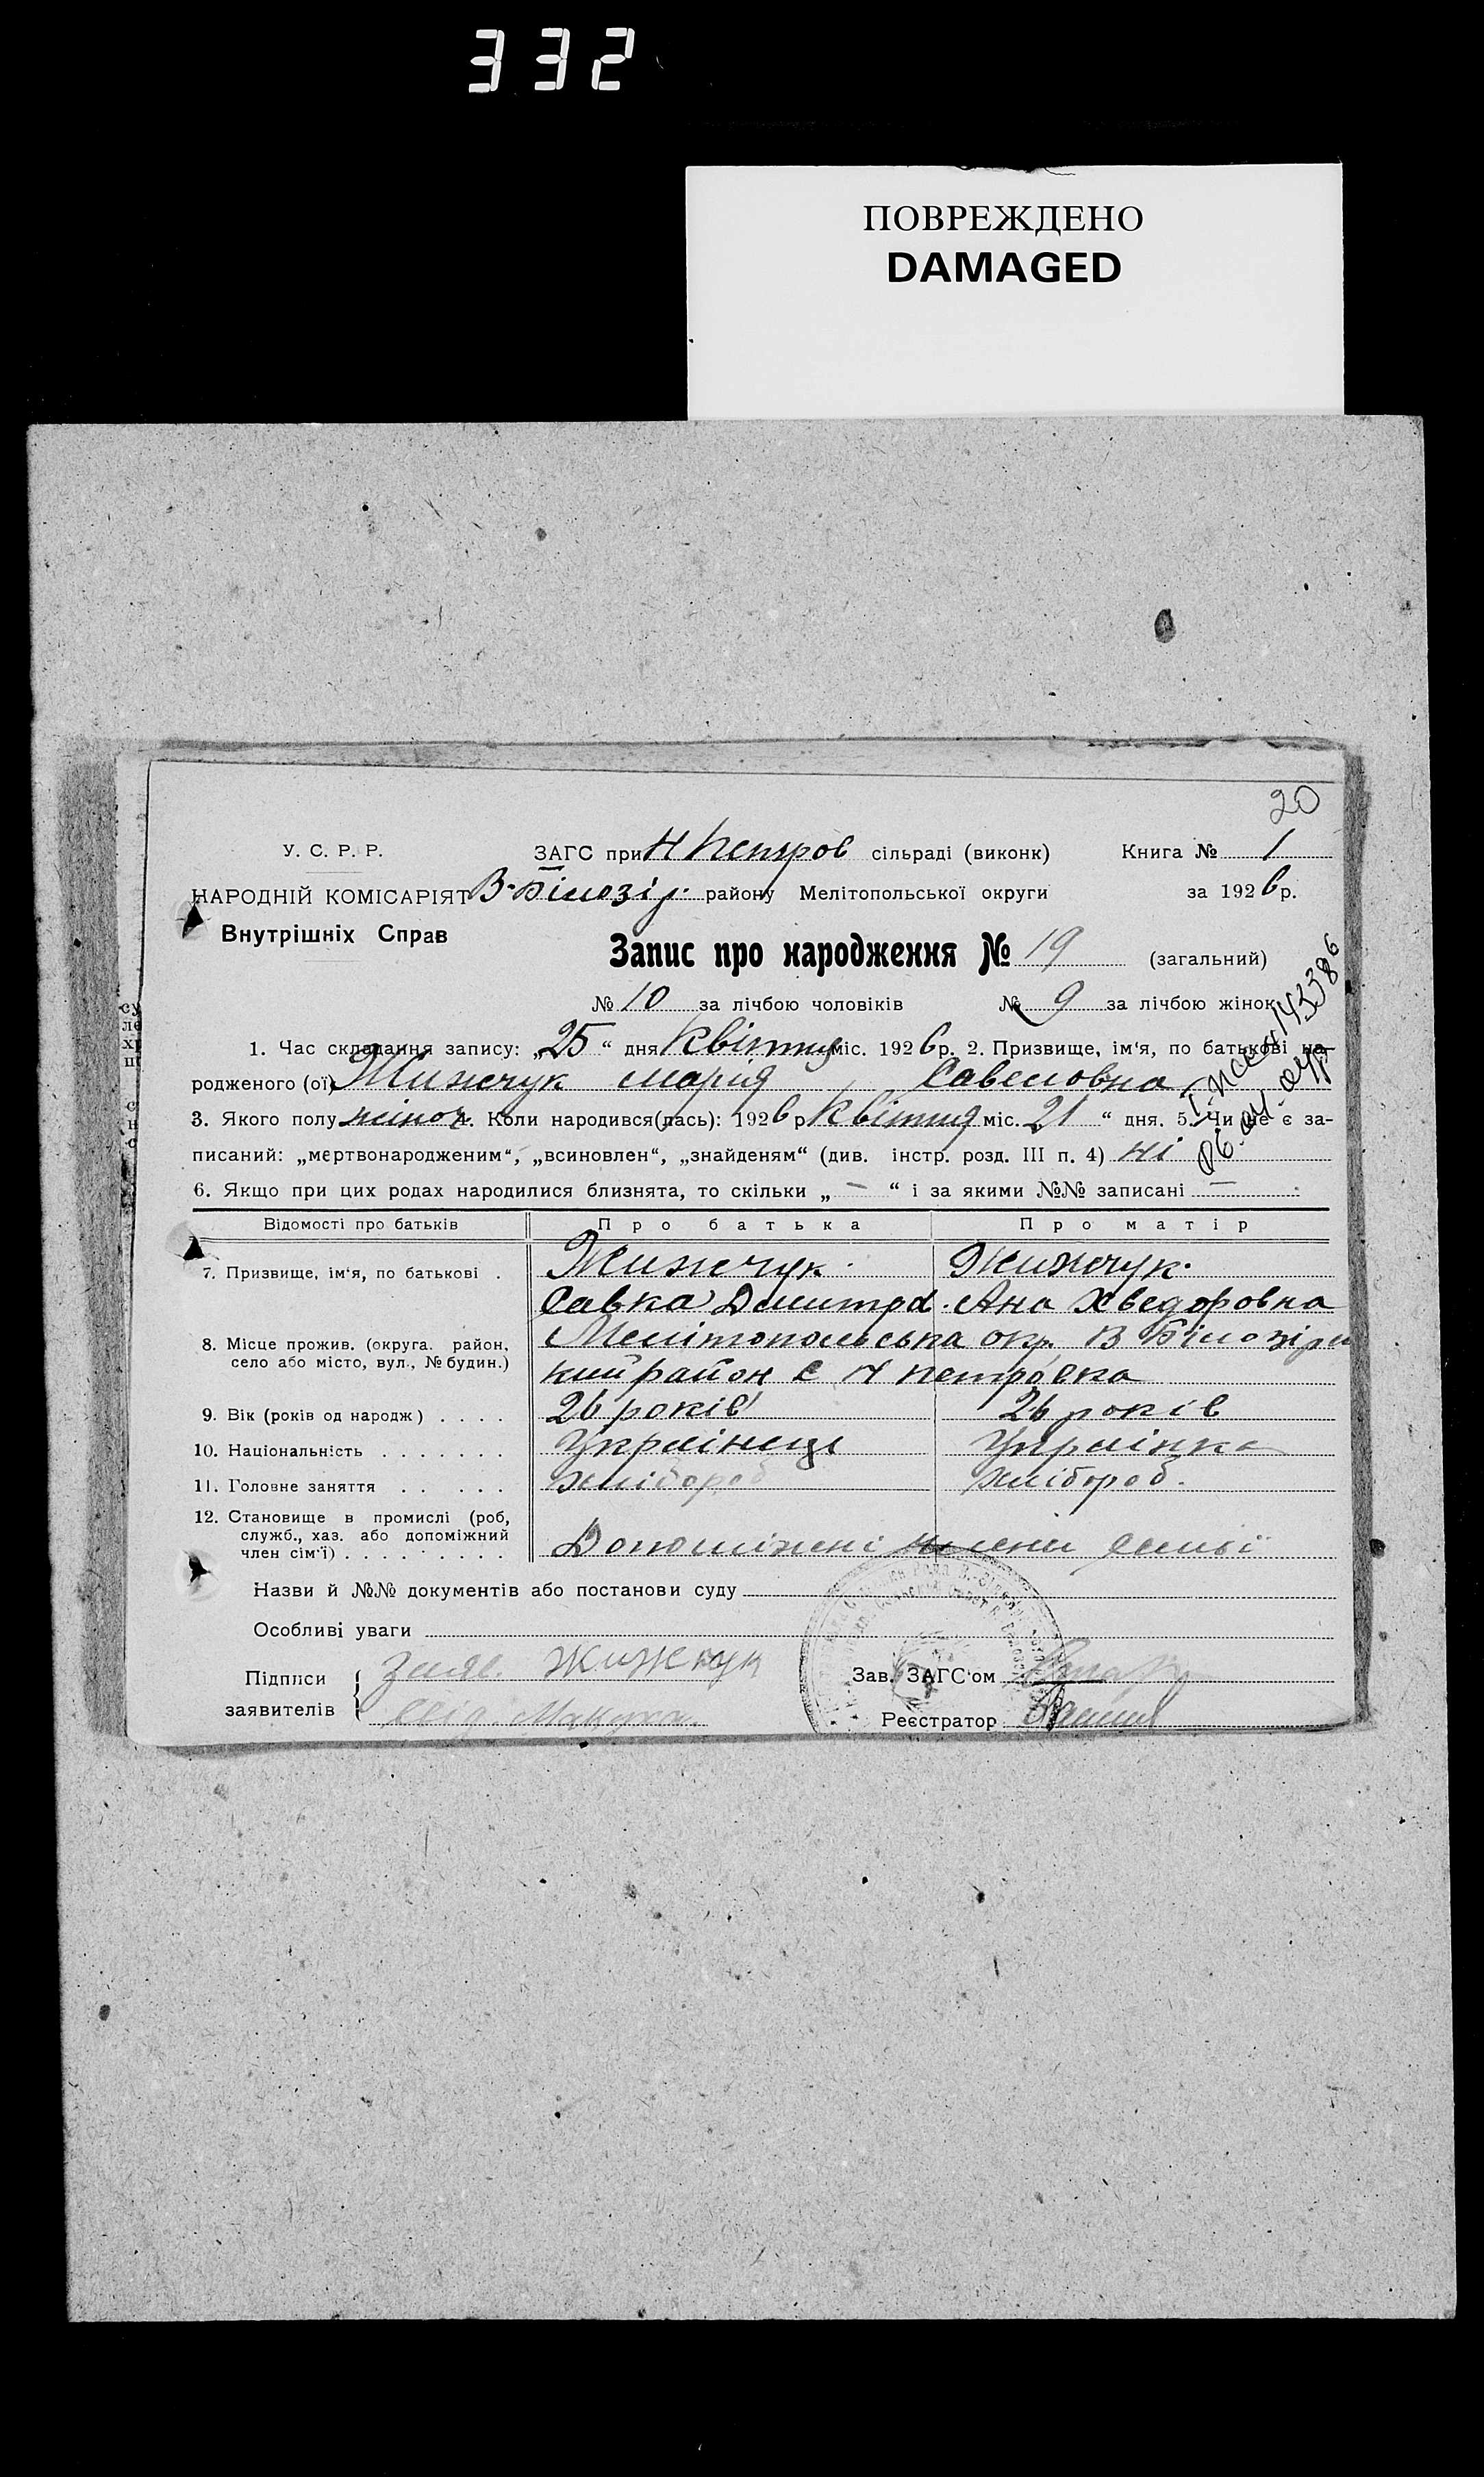 332
ПОВРЕЖДЕНО
DAMAGED
20
У. С. Р. Р.
ЗАГС при Н Петров сільраді (виконк) Книга № 1
НАРОДНІЙ КОМІСАРІЯТ В-Білозір. району Мелітопольської округи за 1926 р.
Внутрішніх Справ
Запис про народження № 19 (загальний)
№ 10 за лічбою чоловіків № 9 за лічбою жінок
1. Час складання запису: „25“ дня Квітня міс. 1926 р. 2. Призвище, ім'я, по батькові на-
родженого (ої) Жижчук Марія Савеловна
3. Якого полу жіноч 4. Коли народився(лась): 1926 р Квітня міс. 21 “ дня. 5. Чи не є за-
писаний: „мертвонародженим“, „всиновлен“, „знайденям“ (див. інстр. розд. III п. 4) ні
143386
6. Якщо при цих родах народилися близнята, то скільки „ — “ і за якими №№ записані —
Відомості про батьків Про батька Про матір
7. Призвище, ім'я, по батькові . Жижчук. Жижчук.
Савка Дмитров. Ана Хведоровна
8. Місце прожив. (округа, район, село або місто, вул., № будин.) Мелітопольська окр. В Білозірсь
кий район с Н Петровка
9. Вік (років од народж) . . . . 26 років 26 років
10. Національність . . . . . . . Українець Українка
11. Головне заняття . . . . . хлібороб хлібороб.
12. Становище в промислі (роб,
служб., хаз. або допоміжний
член сім'ї) . . . . . . . . . Допоміжні члени семьї
Назви й №№ документів або постанови суду
Особливі уваги
Підписи заявителів Заяв. Жижчук Зав. ЗАГС'ом
Свід. Макуха. Реєстратор